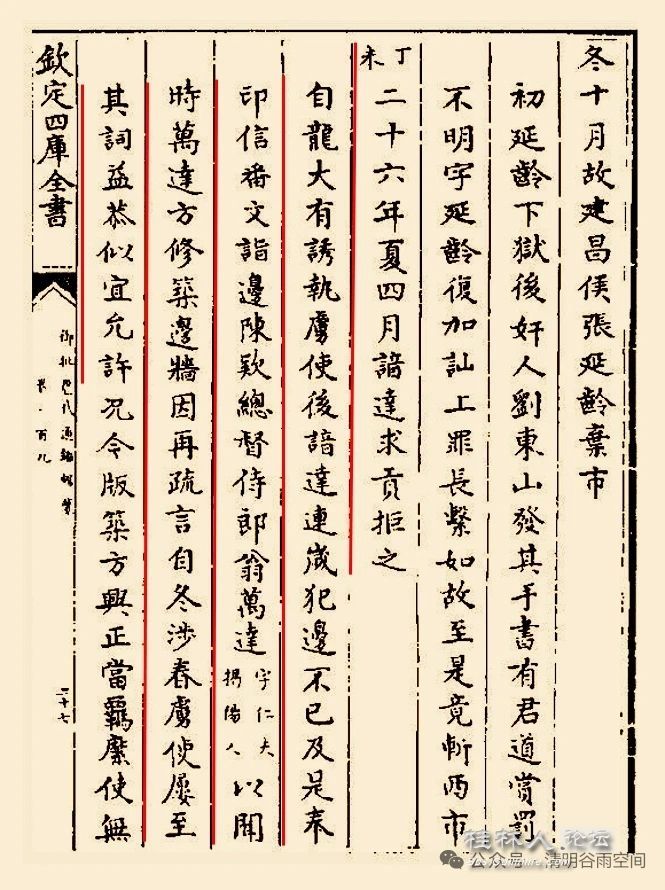 冬十月故建昌侯張延齡棄市
初延齡下獄後奸人劉東山發其手書有君道賞罰
不明字延齡復加訕上罪長繫如故至是竟斬西市
丁未二十六年夏四月諳達求貢拒之
自龍大有誘執虜使後諳達連歲犯邊不已及是奉
印信番文詣邊陳欵總督侍郎翁萬達字仁夫揭陽人以聞
時萬達方修築邊牆因再疏言自冬涉春虜使屢至
其詞益恭似宜允許况令版築方興正當羈縻使無
欽定四庫全書
御批歷代通鑑輯覽
卷一百九
二十七
桂林人论坛
公众号 清明谷雨空间